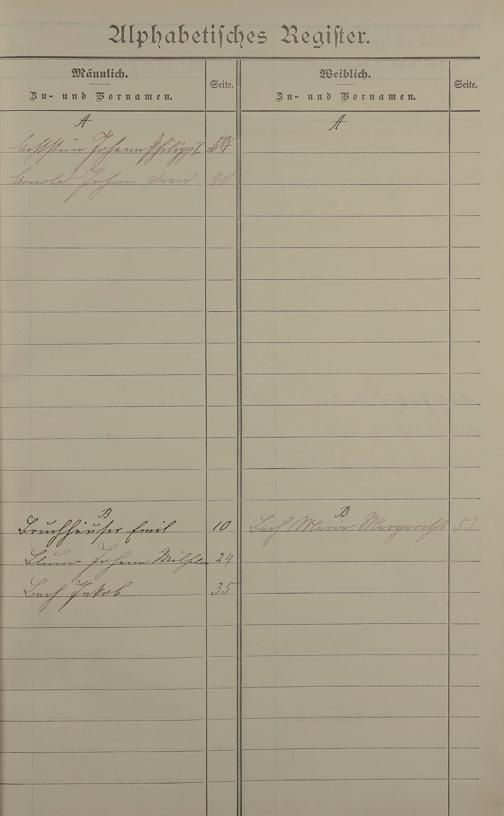 Alphabetisches Register.
Männlich.
Zu- und Vornamen.
Seite.
Weiblich.
Zu- und Vornamen.
Seite.
A
A
Johann Philipp I
Arnold Johann 40
B
B
Bruchhäuser Emil 10
Bach Maria Margarethe
Blum Johann Wilhelm 24
Bach Jakob 35